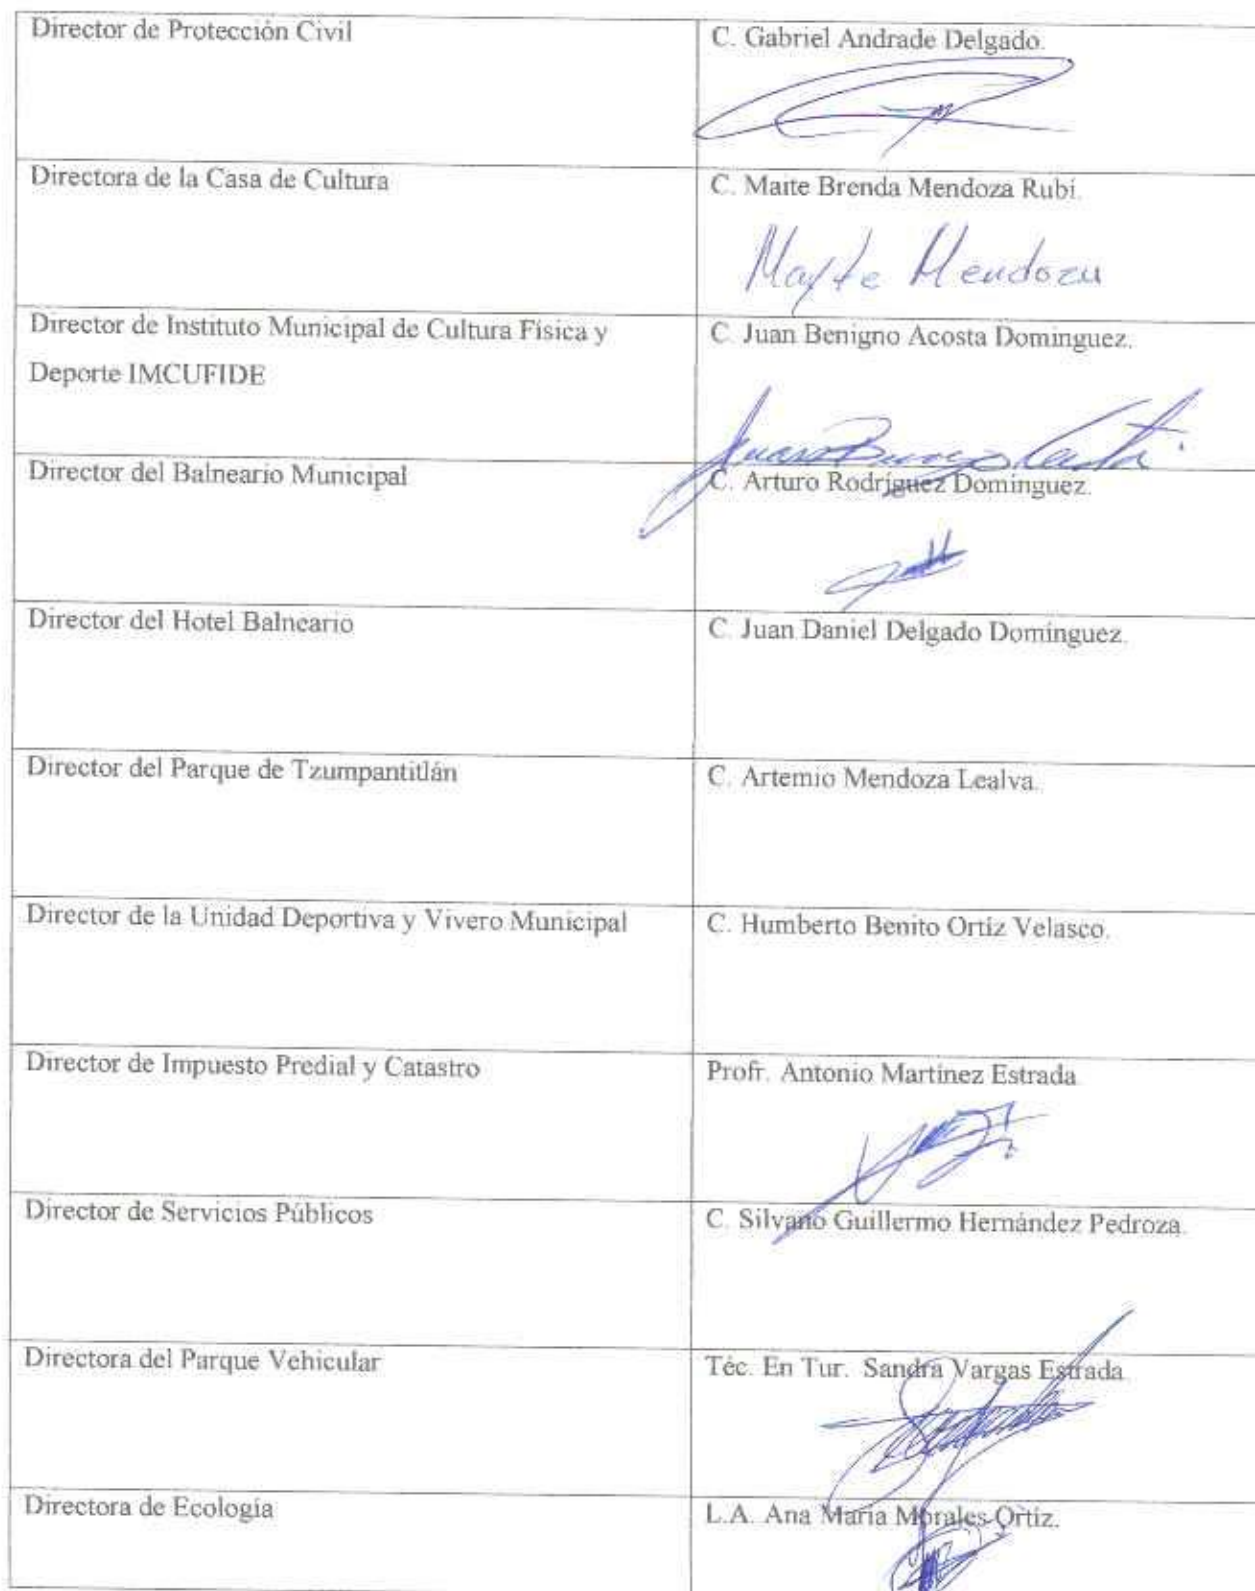 Director de Protección Civil
C. Gabriel Andrade Delgado.
Directora de la Casa de Cultura
C. Maite Brenda Mendoza Rubí.
Mayte Mendoza
Director de Instituto Municipal de Cultura Física y
Deporte IMCUFIDE
C. Juan Benigno Acosta Domínguez.
Director del Balneario Municipal
C. Arturo Rodríguez Domínguez.
Director del Hotel Balneario
C. Juan Daniel Delgado Domínguez.
Director del Parque de Tzumpantitlán
C. Artemio Mendoza Lealva.
Director de la Unidad Deportiva y Vivero Municipal
C. Humberto Benito Ortíz Velasco.
Director de Impuesto Predial y Catastro
Profr. Antonio Martínez Estrada
Director de Servicios Públicos
C. Silvano Guillermo Hernández Pedroza.
Directora del Parque Vehicular
Téc. En Tur. Sandra Vargas Estrada
Directora de Ecología
L.A. Ana María Morales Ortíz.